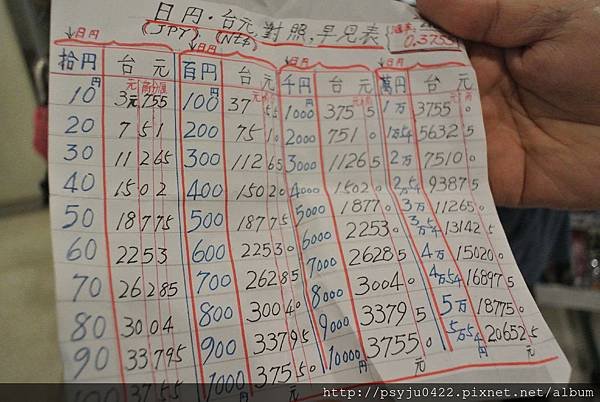 日円・台元 對照,早見表 匯率 0.3755
(JPY) (NT$)
↓日円 ↓日円 ↓日円 ↓日円
拾円 台元 百円 台元 千円 台元 萬円 台元
10円 3元755 100円 37 55 1000円 375 5 1万 3755 0
20 7 51 200 75 10 2000 751 0 1万5千 5632 5
30 11 265 300 112 65 3000 1126 5 2万 7510 0
40 15 02 400 150 20 4000 1502 0 2万5千 9387 5
50 18 775 500 187 75 5000 1877 3万 11265 0
60 22 53 600 225 30 6000 2253 0 3万5千 13142 5
70 26 285 700 262 85 7000 2628 5 4万 15020 0
80 30 04 800 300 40 8000 3004 0 4万5千 16897 5
90 33 795 900 337 95 9000 3379 5 5万 18775 0
37 55 1000円 375 50 10000円 3755 0元 5万5千円 20652 5元
http://psyju0422.pixnet.net/album